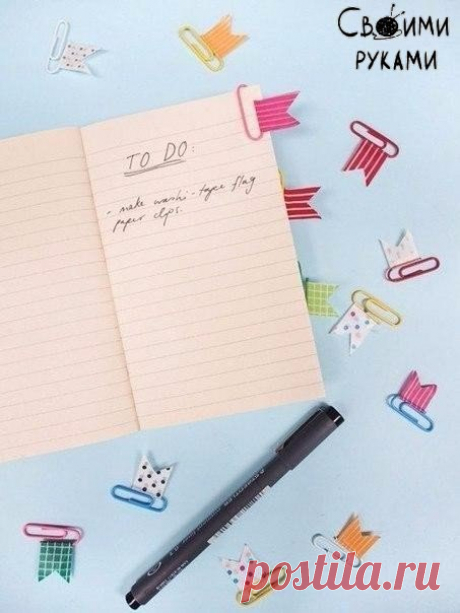 Своими
руками
TO DO:
- make washi-tape flag
paper clips.
postila.ru